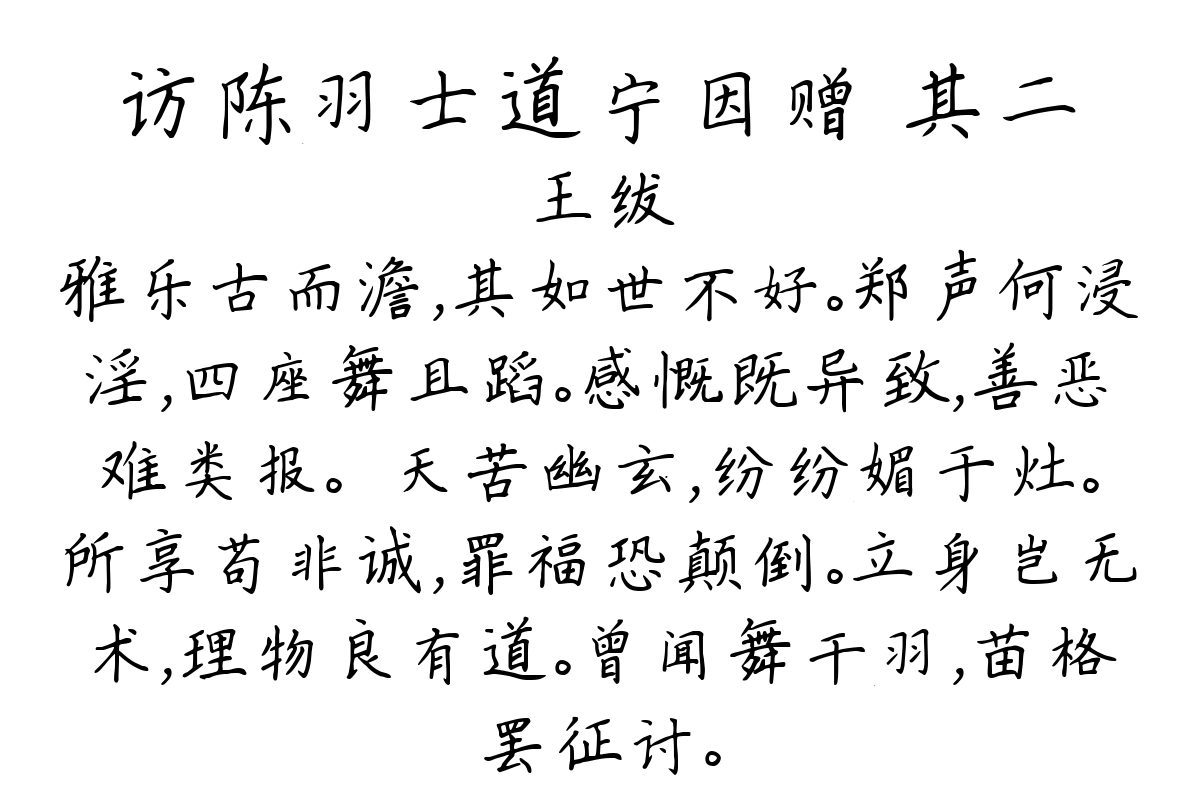 访陈羽士道宁因赠 其二
王绂
雅乐古而澹,其如世不好。郑声何浸
淫,四座舞且蹈。感慨既异致,善恶
难类报。天苦幽玄,纷纷媚于灶。
所享苟非诚,罪福恐颠倒。立身岂无
术,理物良有道。曾闻舞干羽,苗格
罢征讨。